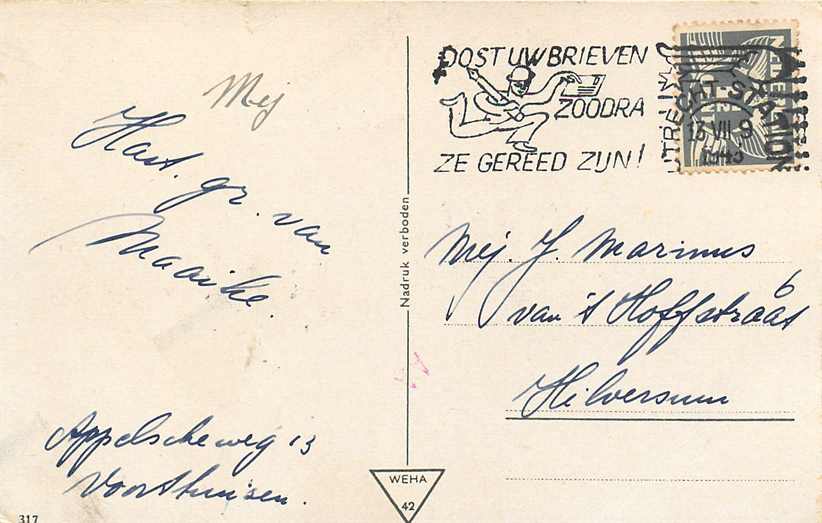 Mej
Hart. gr. van
Maaike.
Appelscheweg 13
Voorthuizen.
317
Nadruk verboden
WEHA
42
POST UW BRIEVEN
ZOODRA
ZE GEREED ZIJN!
UTRECHT-STATION
13 VII 9
Mej. J. Marinus
6
van 't Hoffstraat
Hilversum